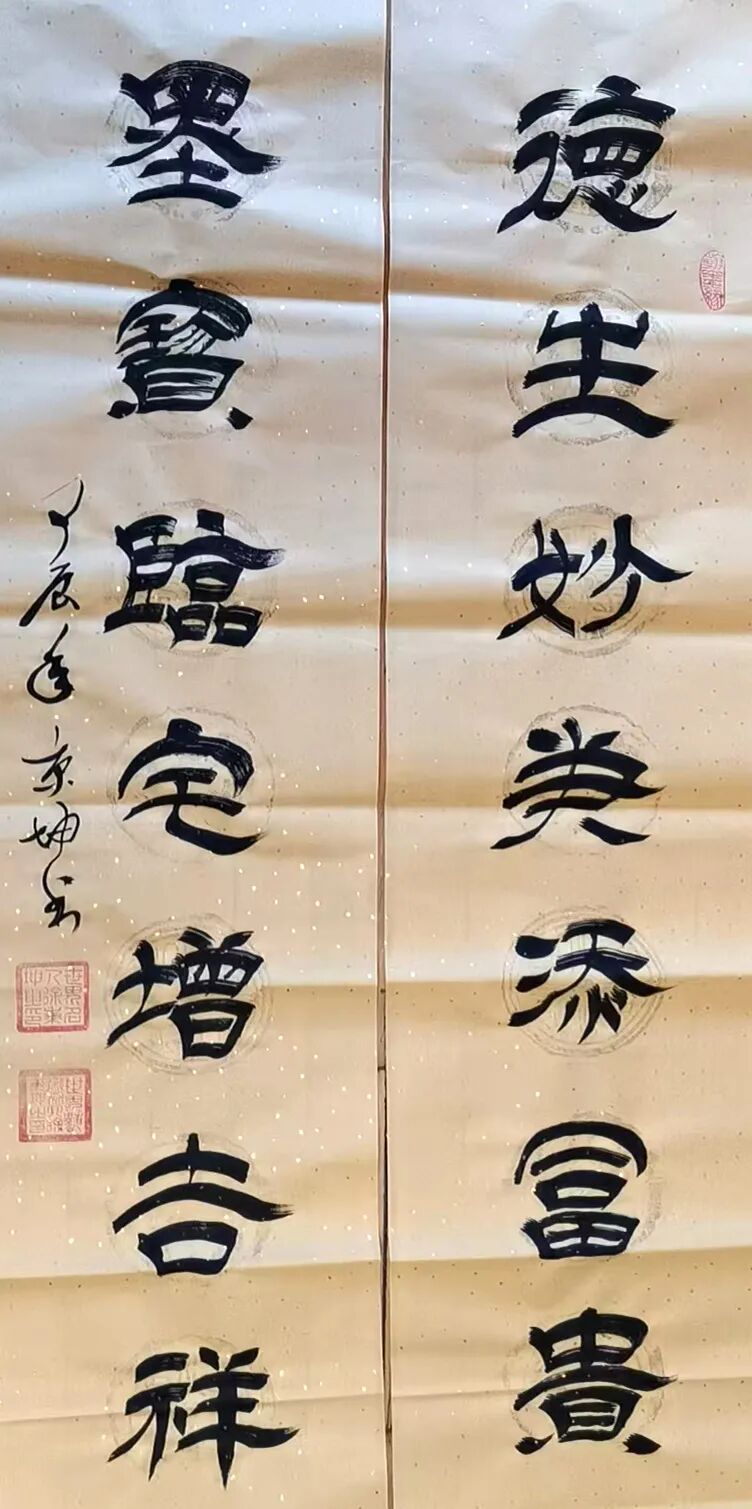 德生妙美添富貴
墨寶臨宅增吉祥
甲辰年京坤书